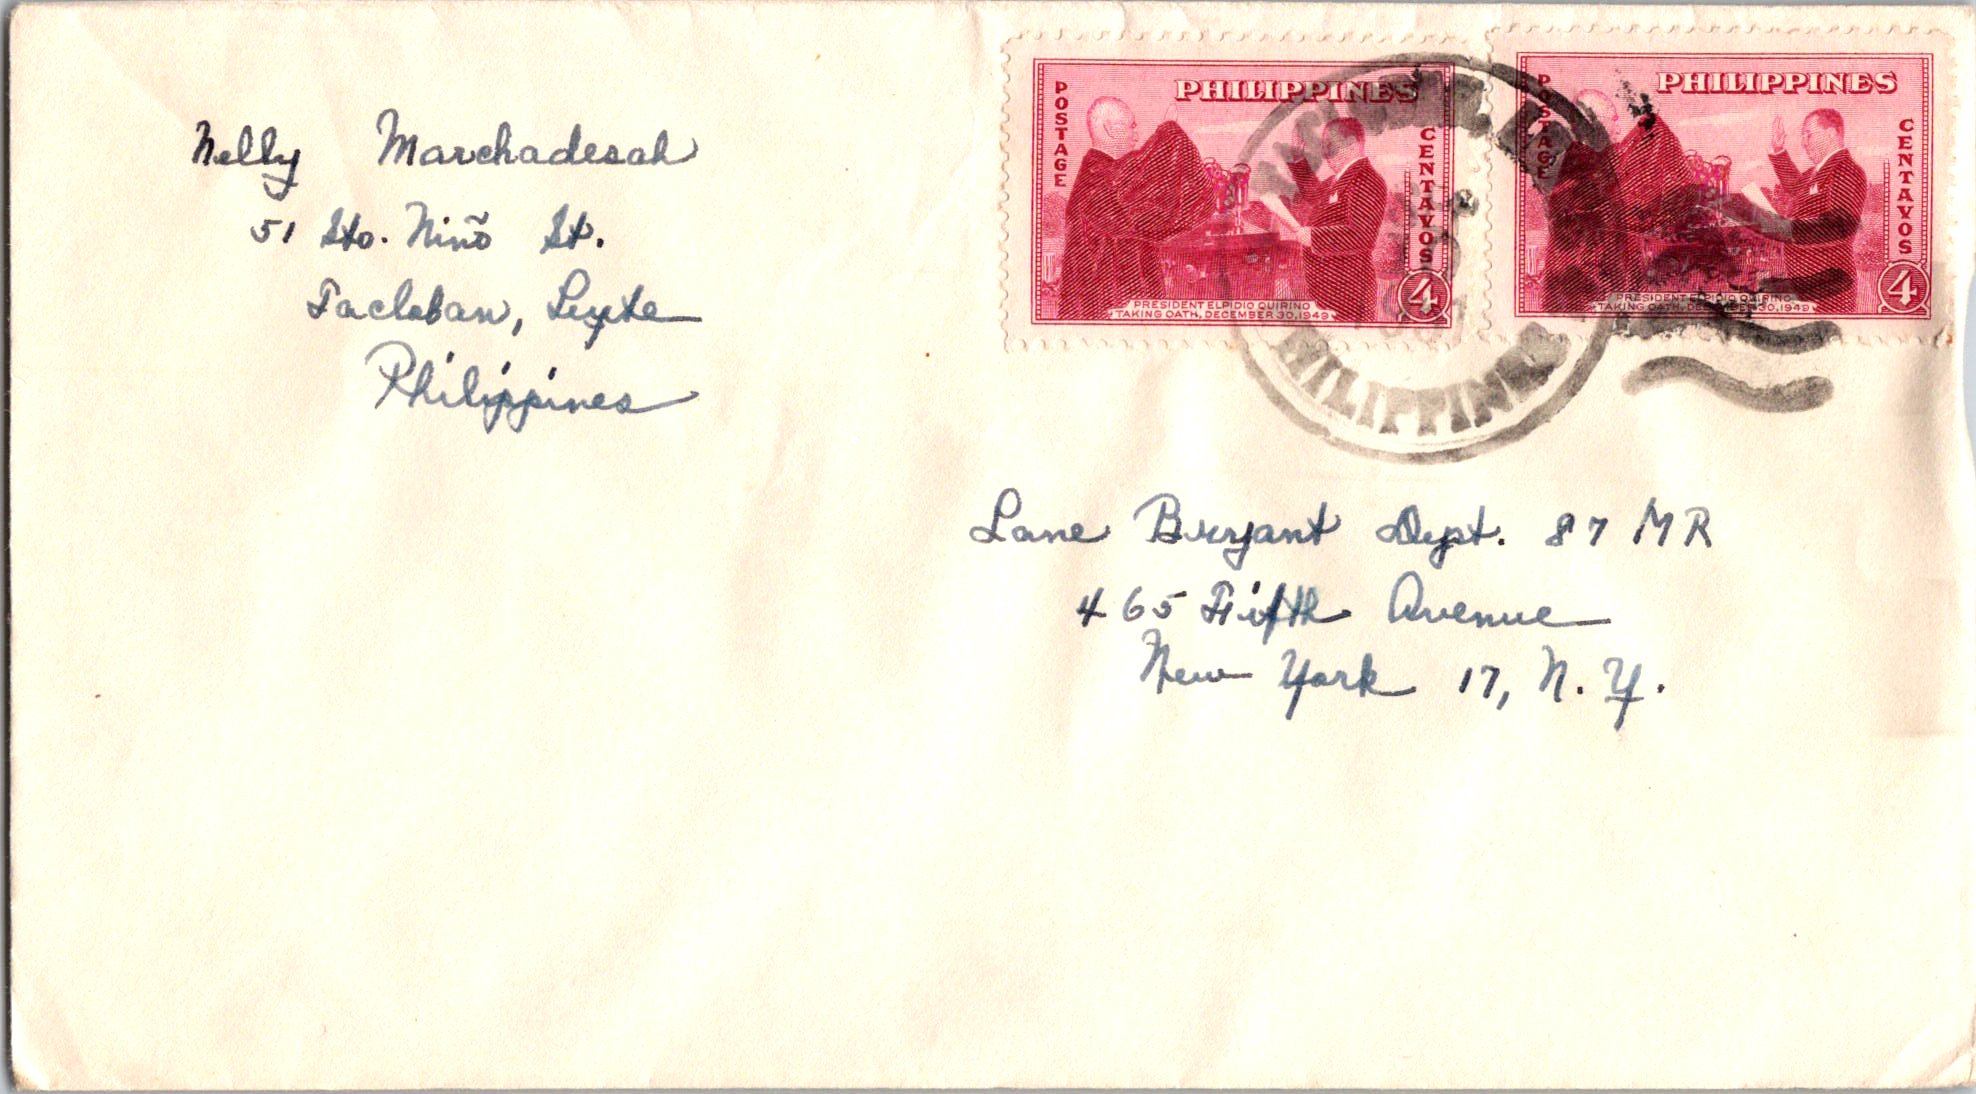 Nelly Marchadesah
51 Sto. Niño St.
Tacloban, Leyte
Philippines
POSTAGE
PHILIPPINES
CENTAVOS
4
PRESIDENT ELPIDIO QUIRINO
TAKING OATH, DECEMBER 30, 1949
POSTAGE
PHILIPPINES
CENTAVOS
4
PRESIDENT ELPIDIO QUIRINO
TAKING OATH, DECEMBER 30, 1949
PHILIPPINES
Lane Bryant Dept. 87 MR
465 Fifth Avenue
New York 17, N.Y.